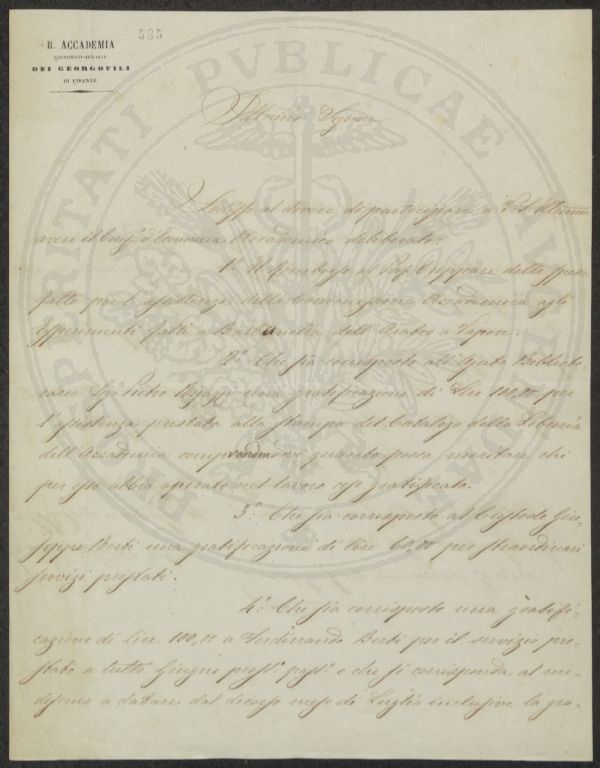 585
R. ACCADEMIA
ECONOMICO-AGRARIA
DEI GEORGOFILI
DI FIRENZE
PROSPERITATI PVBLICAE AVGENDAE
Signore
di participare a V. S.
avere il Cons.° d'Economia Accademico deliberato:
1.° Il rimborso al Prof. delle spese
fatte per l'assistenza della Commissione Accademica agli
esperimenti fatti a dell'Aratro a Vapore.
2.° Che sia corrisposto all'Ajuto Bibliote-
cario Sig. Pietro una gratificazione di Lire 100,00 per
l'assistenza prestata alla stampa del Catalogo della Libreria
dell'Accademia quanto possa meritare chi
per esso abbia operato nel lavoro
3.° Che sia corrisposto al Custode Giu-
seppe Berti una gratificazione di Lire 60,00 per straordinari
servizi prestati.
4.° Che sia corrisposto una gratifi-
cazione di Lire 100,00 a Ferdinando Berti per il servizio pre-
stato a tutto Giugno pross.° pass.° e che si corrisponda al me-
desimo a datare dal decorso mese di Luglio inclusive la gra-